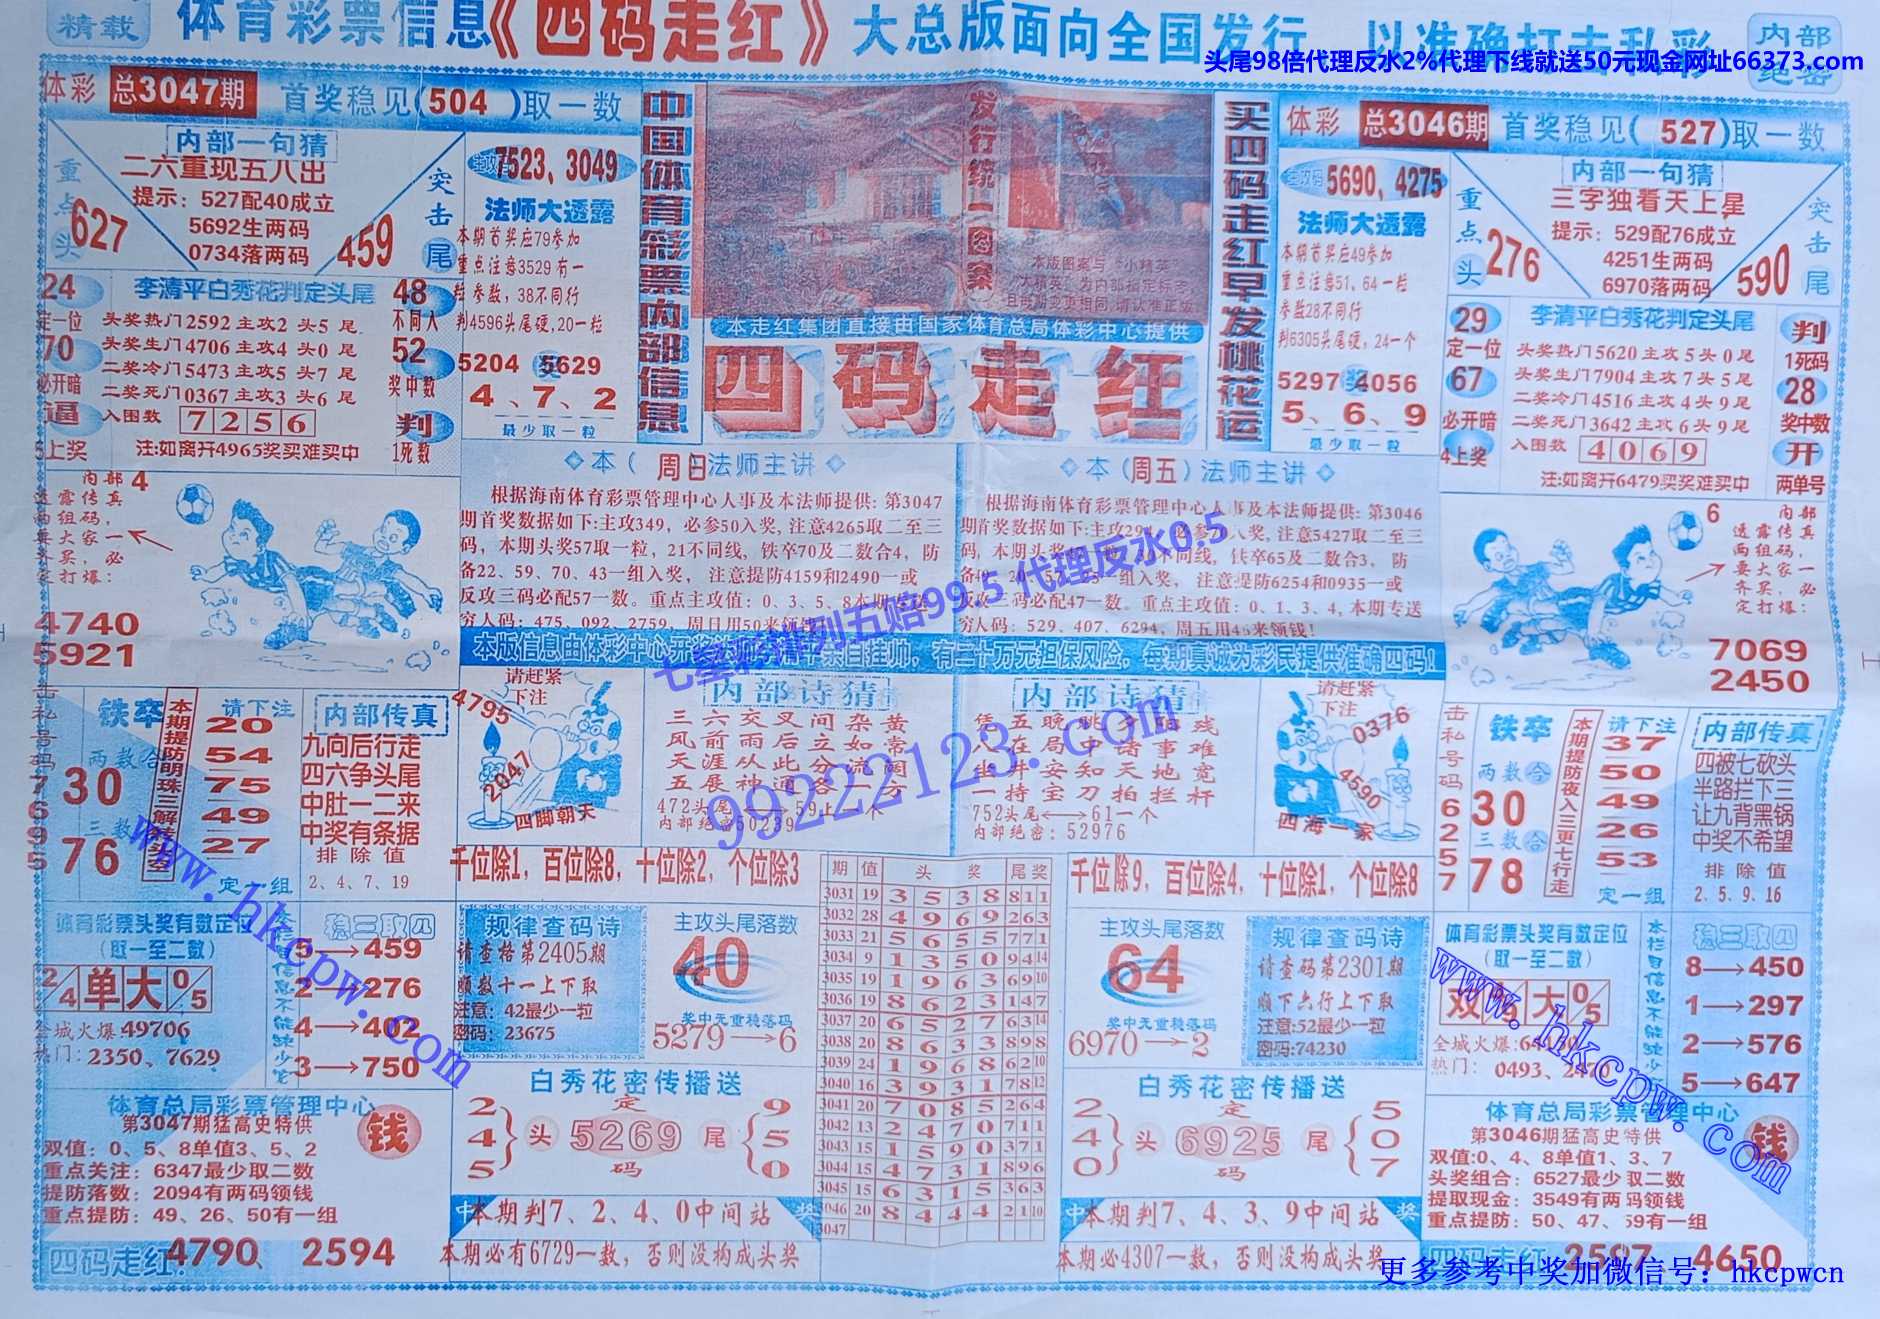 精载
体育彩票信息《四码走红》大总版面向全国发行 以准确打击私彩
内部
绝密
头尾98倍代理反水2%代理下线就送50元现金网址66373.com
体彩 总3047期 首奖稳见(504 )取一数
内部一句猜
二六重现五八出
提示：527配40成立
5692生两码
0734落两码
重点头
627
突击尾
459
主攻码 7523, 3049
法师大透露
本期首奖应79参加
重点注意3529有一
粒参数，38不同行
判4596头尾硬,20一粒
5204 奖 5629
4、7、2
最少取一粒
24
定一位
70
必开暗
逼
5上奖
李清平白秀花判定头尾
头奖热门2592主攻2 头5 尾
头奖生门4706主攻4 头0 尾
二奖冷门5473主攻5 头7 尾
二奖死门0367主攻3 头6 尾
入图数 7256
注:如离开4965奖买难买中
48
不同入
52
奖中数
判
1死数
中国体育彩票内部信息
发行统一图案
本版图案与"小精英"
"大精英"为内部指定标志
且每期变更相同,请认准正版
本走红集团直接由国家体育总局体彩中心提供
四码走红
买四码走红早发桃花运
体彩 总3046期 首奖稳见( 527)取一数
主攻码 5690, 4275
法师大透露
本期首奖应49参加
重点注意51, 64一粒
参数28不同行
判6305头尾硬，24一个
5297 奖 4056
5、6、9
最少取一粒
内部一句猜
三字独看天上星
提示：529配76成立
4251生两码
6970落两码
重点头
276
突击尾
590
29
定一位
67
必开暗
4上奖
李清平白秀花判定头尾
头奖热门5620主攻5头0尾
头奖生门7904主攻7头5尾
二奖冷门4516主攻4头9尾
二奖死门3642主攻6头9尾
入图数 4069
注:如离开6479买奖难买中
判
1死码
28
奖中数
开
两单号
内部 4
透露传真
两组码，
要大家一
齐买，必
定打爆：
4740
5921
◇本（ 周日法师主讲◇
根据海南体育彩票管理中心人事及本法师提供：第3047
期首奖数据如下:主攻349，必参50入奖,注意4265取二至三
码，本期头奖57取一粒，21不同线，铁卒70及二数合4，防
备22、59、70、43一组入奖， 注意提防4159和2490一或
反攻三码必配57一数。重点主攻值：0、3、5、8本期专送
穷人码：475、092、2759，周日用50来领钱
◇本（周五）法师主讲◇
根据海南体育彩票管理中心人事及本法师提供：第3046
入奖,注意5427取二至三
铁卒65及二数合3，防
一组入奖， 注意提防6254和0935一或
反攻三码必配47一数。重点主攻值：0、1、3、4,本期专送
穷人码：529、407、6294，周五用 来领钱!
本版信息由体彩中心开奖法师李清平亲自挂帅，有二十万元担保风险，每期真诚为彩民提供准确四码！
6 内部
透露传真
两组码，
要大家一
齐买，必
定打爆：
7069
2450
七星彩排列五赔99.5 代理反水0.5
99222123.com
击私号码 76695
铁卒
两数合
30
三数
76
本期提防明珠三解转头空
请下注
20
54
75
49
27
定一组
内部传真
九向后行走
四六争头尾
中肚一二来
中奖有条据
排除值
2、4、7、19
请赶紧
下注
4795
2047
四脚朝天
内部诗猜
三六交叉间杂黄
风前雨后立如常
天涯从此分流阔
五展神通各一方
472头尾⟷59止一个
内部绝密50239
内部诗猜
凭五晚眺夕阳残
人在局中诸事难
坐井安知天地宽
一持宝刀拍拦杆
752头尾⟷61一个
内部绝密：52976
请赶紧
下注
0376
4590
四海一家
击私号码 6257
铁卒
两数合
30
三数合
78
本期提防夜入三更七行走
请下注
37
50
49
26
53
定一组
内部传真
四被七砍头
半路拦下三
让九背黑锅
中奖不希望
排除值
2. 5. 9. 16
千位除1，百位除8，十位除2，个位除3
期 值 头 奖 尾奖
3031 19 3 5 3 8 8 1 1
3032 28 4 9 6 9 2 6 3
3033 21 5 6 5 5 7 7 1
3034 9 1 3 5 0 9 4 14
3035 19 1 9 6 3 6 9 10
3036 19 8 6 2 3 1 4 7
3037 20 6 5 2 7 6 3 14
3038 20 8 6 3 3 8 9 8
3039 24 1 9 6 8 6 2 10
3040 16 3 9 3 1 7 8 12
3041 20 7 0 8 5 2 6 4
3042 13 2 4 7 0 7 1 1
3043 15 1 5 9 0 3 7 1
3044 15 4 7 3 1 8 9 6
3045 15 6 3 1 5 3 6 3
3046 20 8 4 4 4 2 1 10
3047
千位除9，百位除4，十位除1，个位除8
体育彩票头奖有数定位
（取一至二数）
2/4 单 大 0/5
全城火爆49706
热门：2350、7629
稳三取四
5→459
2→276
4→402
3→750
规律查码诗
请查格第2405期
顺数十一上下取
注意：42最少一粒
密码：23675
主攻头尾落数
40
奖中无重稳落码
5279→6
主攻头尾落数
64
奖中无重稳落码
6970→2
规律查码诗
请查码第2301期
顺下六行上下取
注意:52最少一粒
密码:74230
体育彩票头奖有数定位
（取一至二数）
双 大 0/5
全城火爆:
热门： 0493、2470
本栏目信息不能缺少
稳三取四
8→450
1→297
2→576
5→647
www.hkcpw.com
www.hkcpw.com
体育总局彩票管理中心
第3047期猛高史特供
双值：0、5、8单值3、5、2
重点关注：6347最少取二数
提防落数：2094有两码领钱
重点提防：49、26、50有一组
钱
四码走红：4790、2594
白秀花密传播送
2
4
5
头 定 5269 码 尾
9
5
0
中 本期判7、2、4、0中间站 奖
本期必有6729一数，否则没构成头奖
白秀花密传播送
2
4
0
头 定 6925 码 尾
5
0
7
中 本期判7、4、3、9中间站 奖
本期必4307一数，否则没构成头奖
体育总局彩票管理中心
第3046期猛高史特供
双值:0、4、8单值1、3、7
头奖组合：6527最少取二数
提取现金：3549有两码领钱
重点提防：50、47、59有一组
钱
四码走红：2597、4650
更多参考中奖加微信号：hkcpwcn